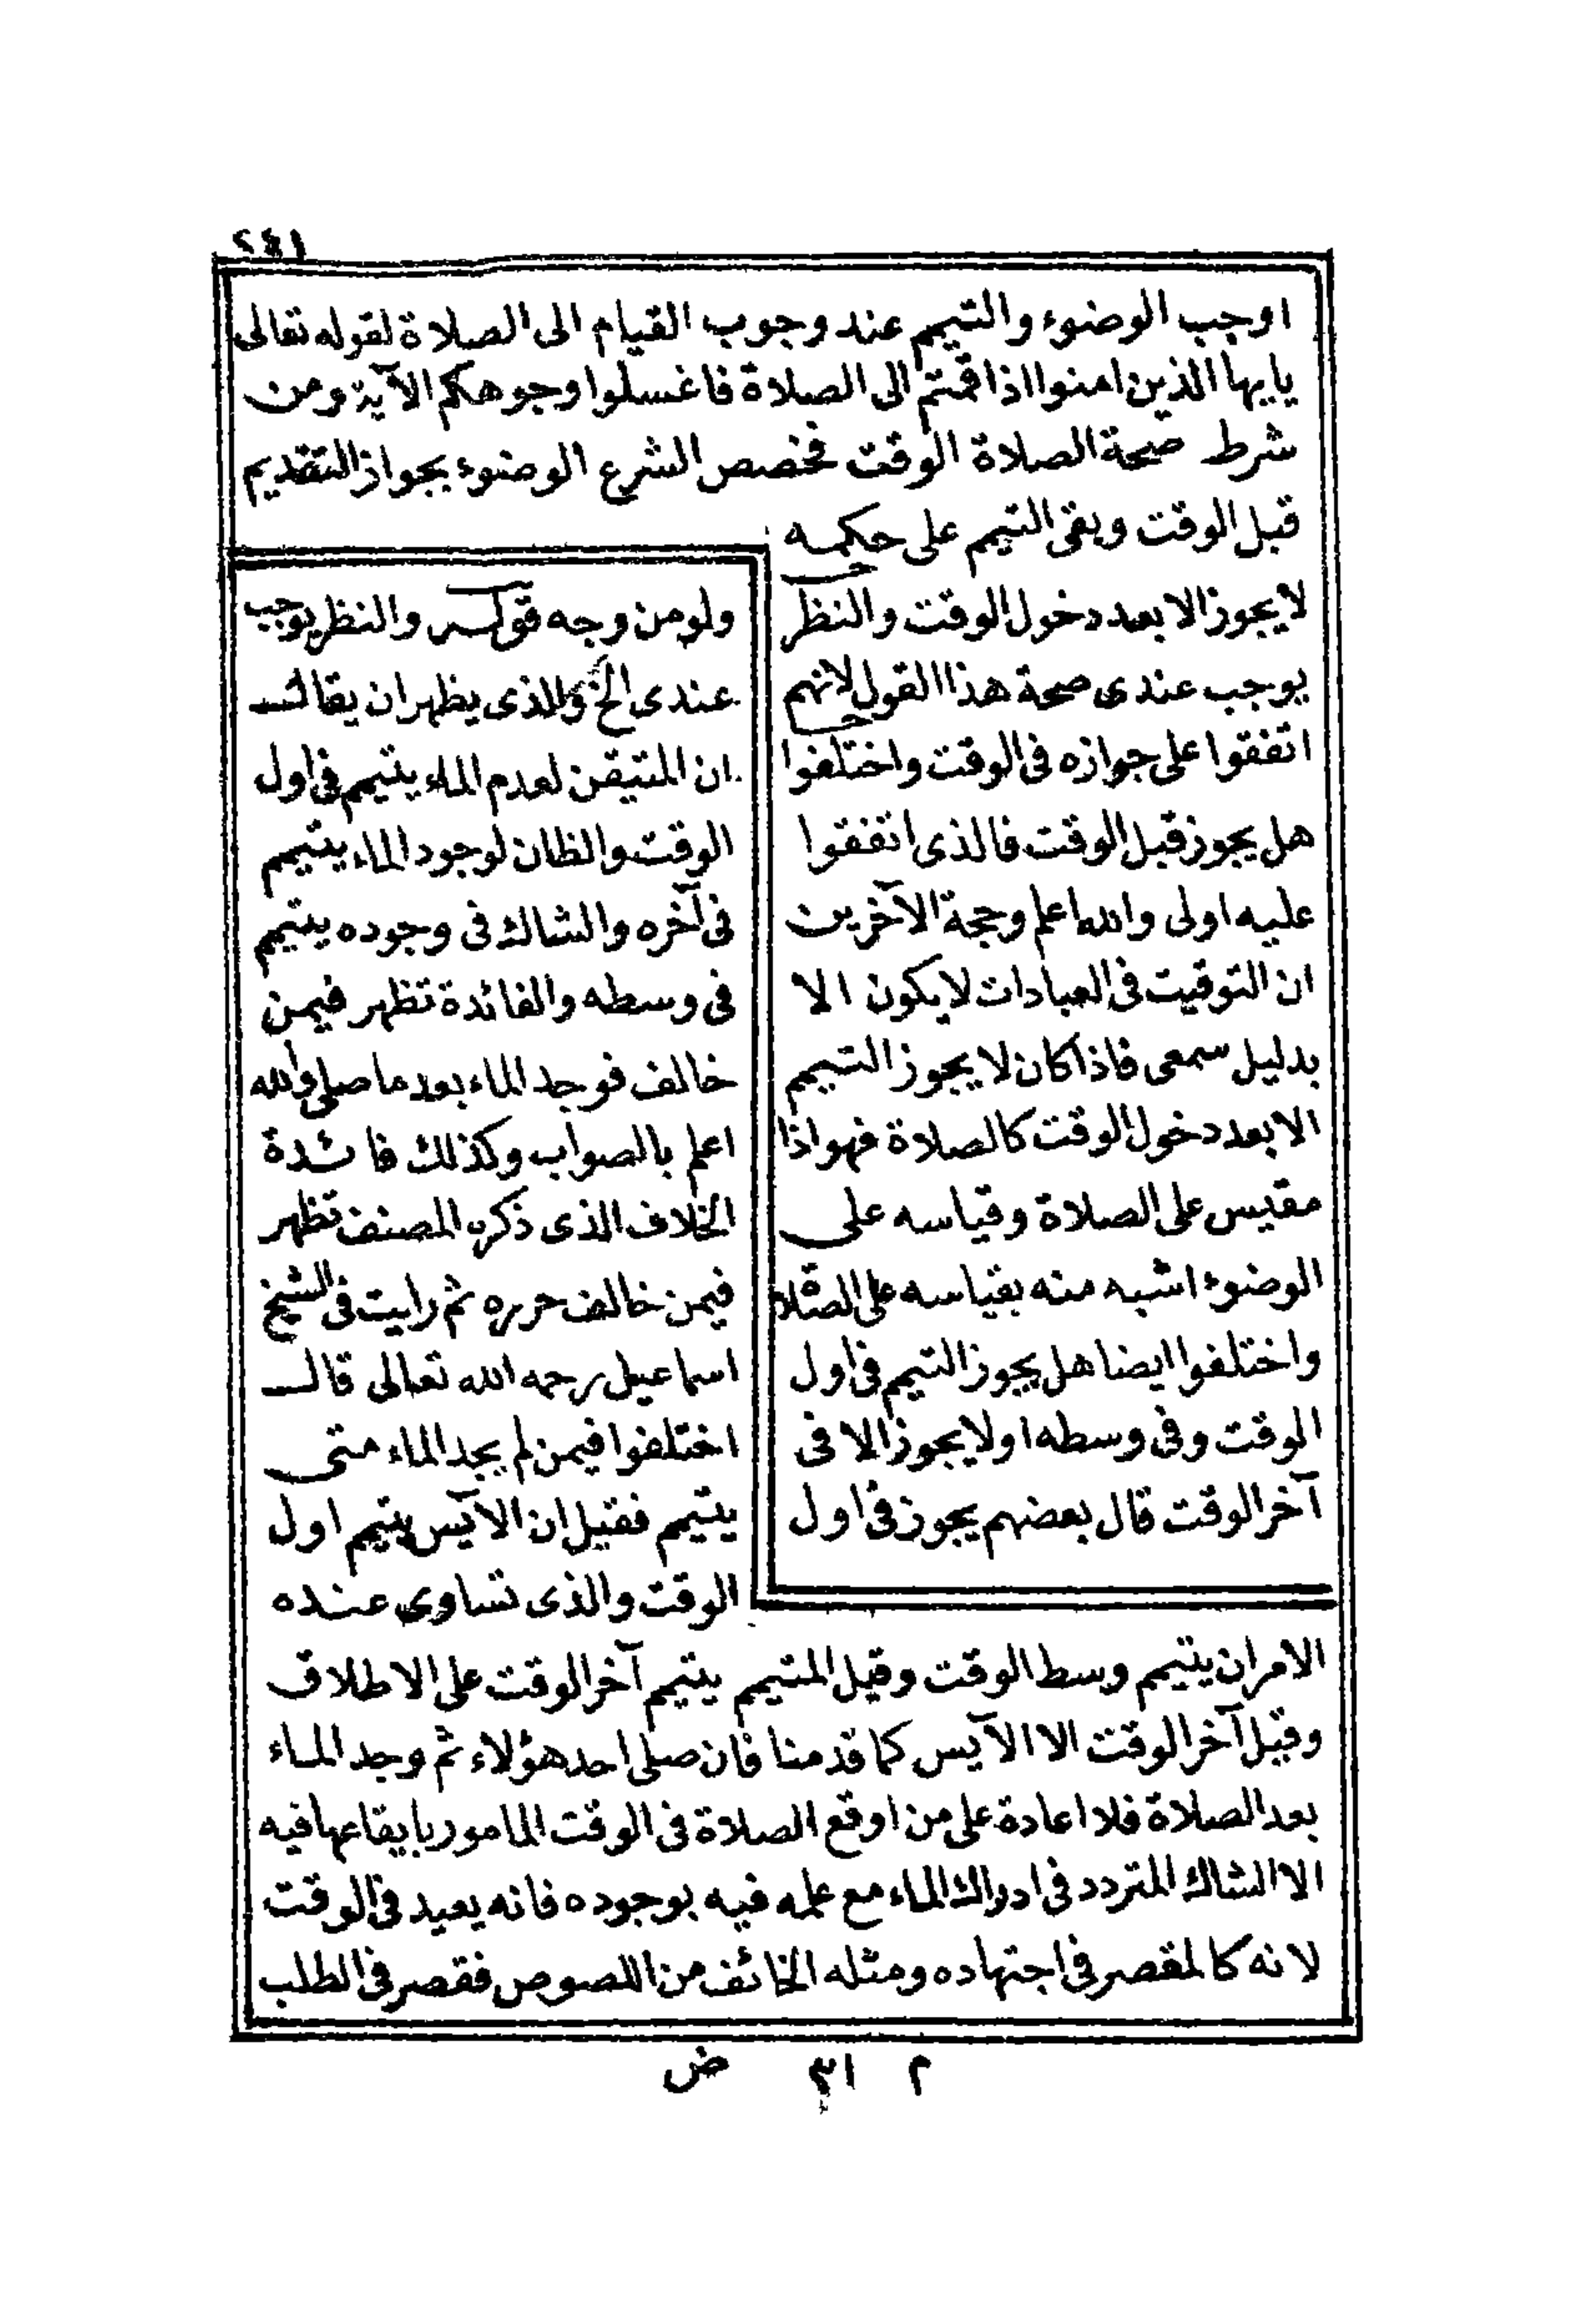 ٢٤١
اوجب الوضوء والتيمم عند وجوب القيام الى الصلاة لقوله تعالى
يايها الذين امنوا اذا قمتم الى الصلاة فاغسلوا وجوهكم الآية ومن
شرط صحة الصلاة الوقت فخصص الشرع الوضوء بجواز التقديم
قبل الوقت وبقى التيمم على حكمه
لا يجوز الا بعد دخول الوقت والنظر
يوجب عندى صحة هذا القول لانهم
اتفقوا على جوازه فى الوقت واختلفوا
هل يجوز قبل الوقت فالذى اتفقوا
عليه اولى والله اعلم وحجة الآخرين
ان التوقيت فى العبادات لا يكون الا
بدليل سمعى فاذا كان لا يجوز التيمم
الا بعد دخول الوقت كالصلاة فهو اذا
مقيس على الصلاة وقياسه على
الوضوء اشبه منه بقياسه على الصلاة
واختلفوا ايضا هل يجوز التيمم فى اول
الوقت وفى وسطه اولا يجوز الا فى
آخر الوقت قال بعضهم يجوز فى اول
ولو من وجه قوله والنظر يوجب
عندى الخ والذى يظهر ان يقال
ان المتيقن لعدم الماء يتيمم فى اول
الوقت والظان لوجود الماء يتيمم
فى آخره والشاك فى وجوده يتيمم
فى وسطه والفائدة تظهر فيمن
خالف فوجد الماء بعد ما صلى والله
اعلم بالصواب وكذلك فائدة
الخلاف الذى ذكره المصنف تظهر
فيمن خالف حرره ثم رايت فى الشيخ
اسماعيل رحمه الله تعالى قال
اختلفوا فيمن لم يجد الماء متى
يتيمم فقيل ان الآيس يتيمم اول
الوقت والذى تساوى عنده
الامران يتيمم وسط الوقت وقيل المتيمم يتيمم آخر الوقت على الاطلاق
وقيل آخر الوقت الا الآيس كما قدمنا فان صلى احد هؤلاء ثم وجد الماء
بعد الصلاة فلا اعادة على من اوقع الصلاة فى الوقت المامور بايقاعها فيه
الا الشاك المتردد فى ادراك الماء مع علمه فيه بوجوده فانه يعيد فى الوقت
لانه كالمقصر فى اجتهاده ومثله الخائف من اللصوص فقصر فى الطلب
م ٣١ ض